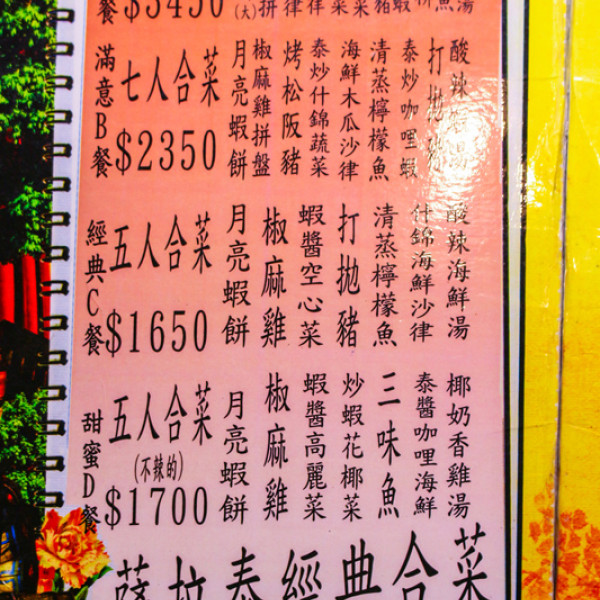 餐 $3450 (大)拼
滿意B餐
七人合菜
$2350
月亮蝦餅
椒麻雞拼盤
烤松阪豬
泰炒什錦蔬菜
海鮮木瓜沙律
清蒸檸檬魚
泰炒咖哩蝦
打拋豬
酸辣湯
經典C餐
五人合菜
$1650
月亮蝦餅
椒麻雞
蝦醬空心菜
打拋豬
清蒸檸檬魚
什錦海鮮沙律
酸辣海鮮湯
甜蜜D餐
五人合菜
(不辣的)
$1700
月亮蝦餅
椒麻雞
蝦醬高麗菜
炒蝦花椰菜
三味魚
泰醬咖哩海鮮
椰奶香雞湯
薩拉泰經典合菜